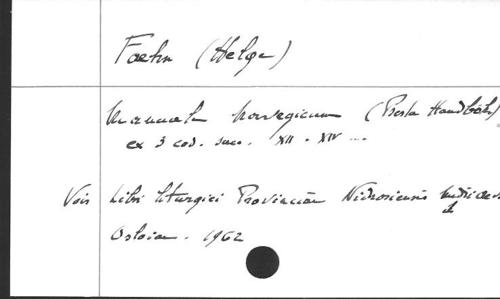 Faehn (Helge)
Manuale Norvegicum (Presta Handbók)
ex 3 cod. saec. XII - XIV ...
Voir Libri liturgici Provinciae Nidrosiensis medii aevi
Osloiae. 1962